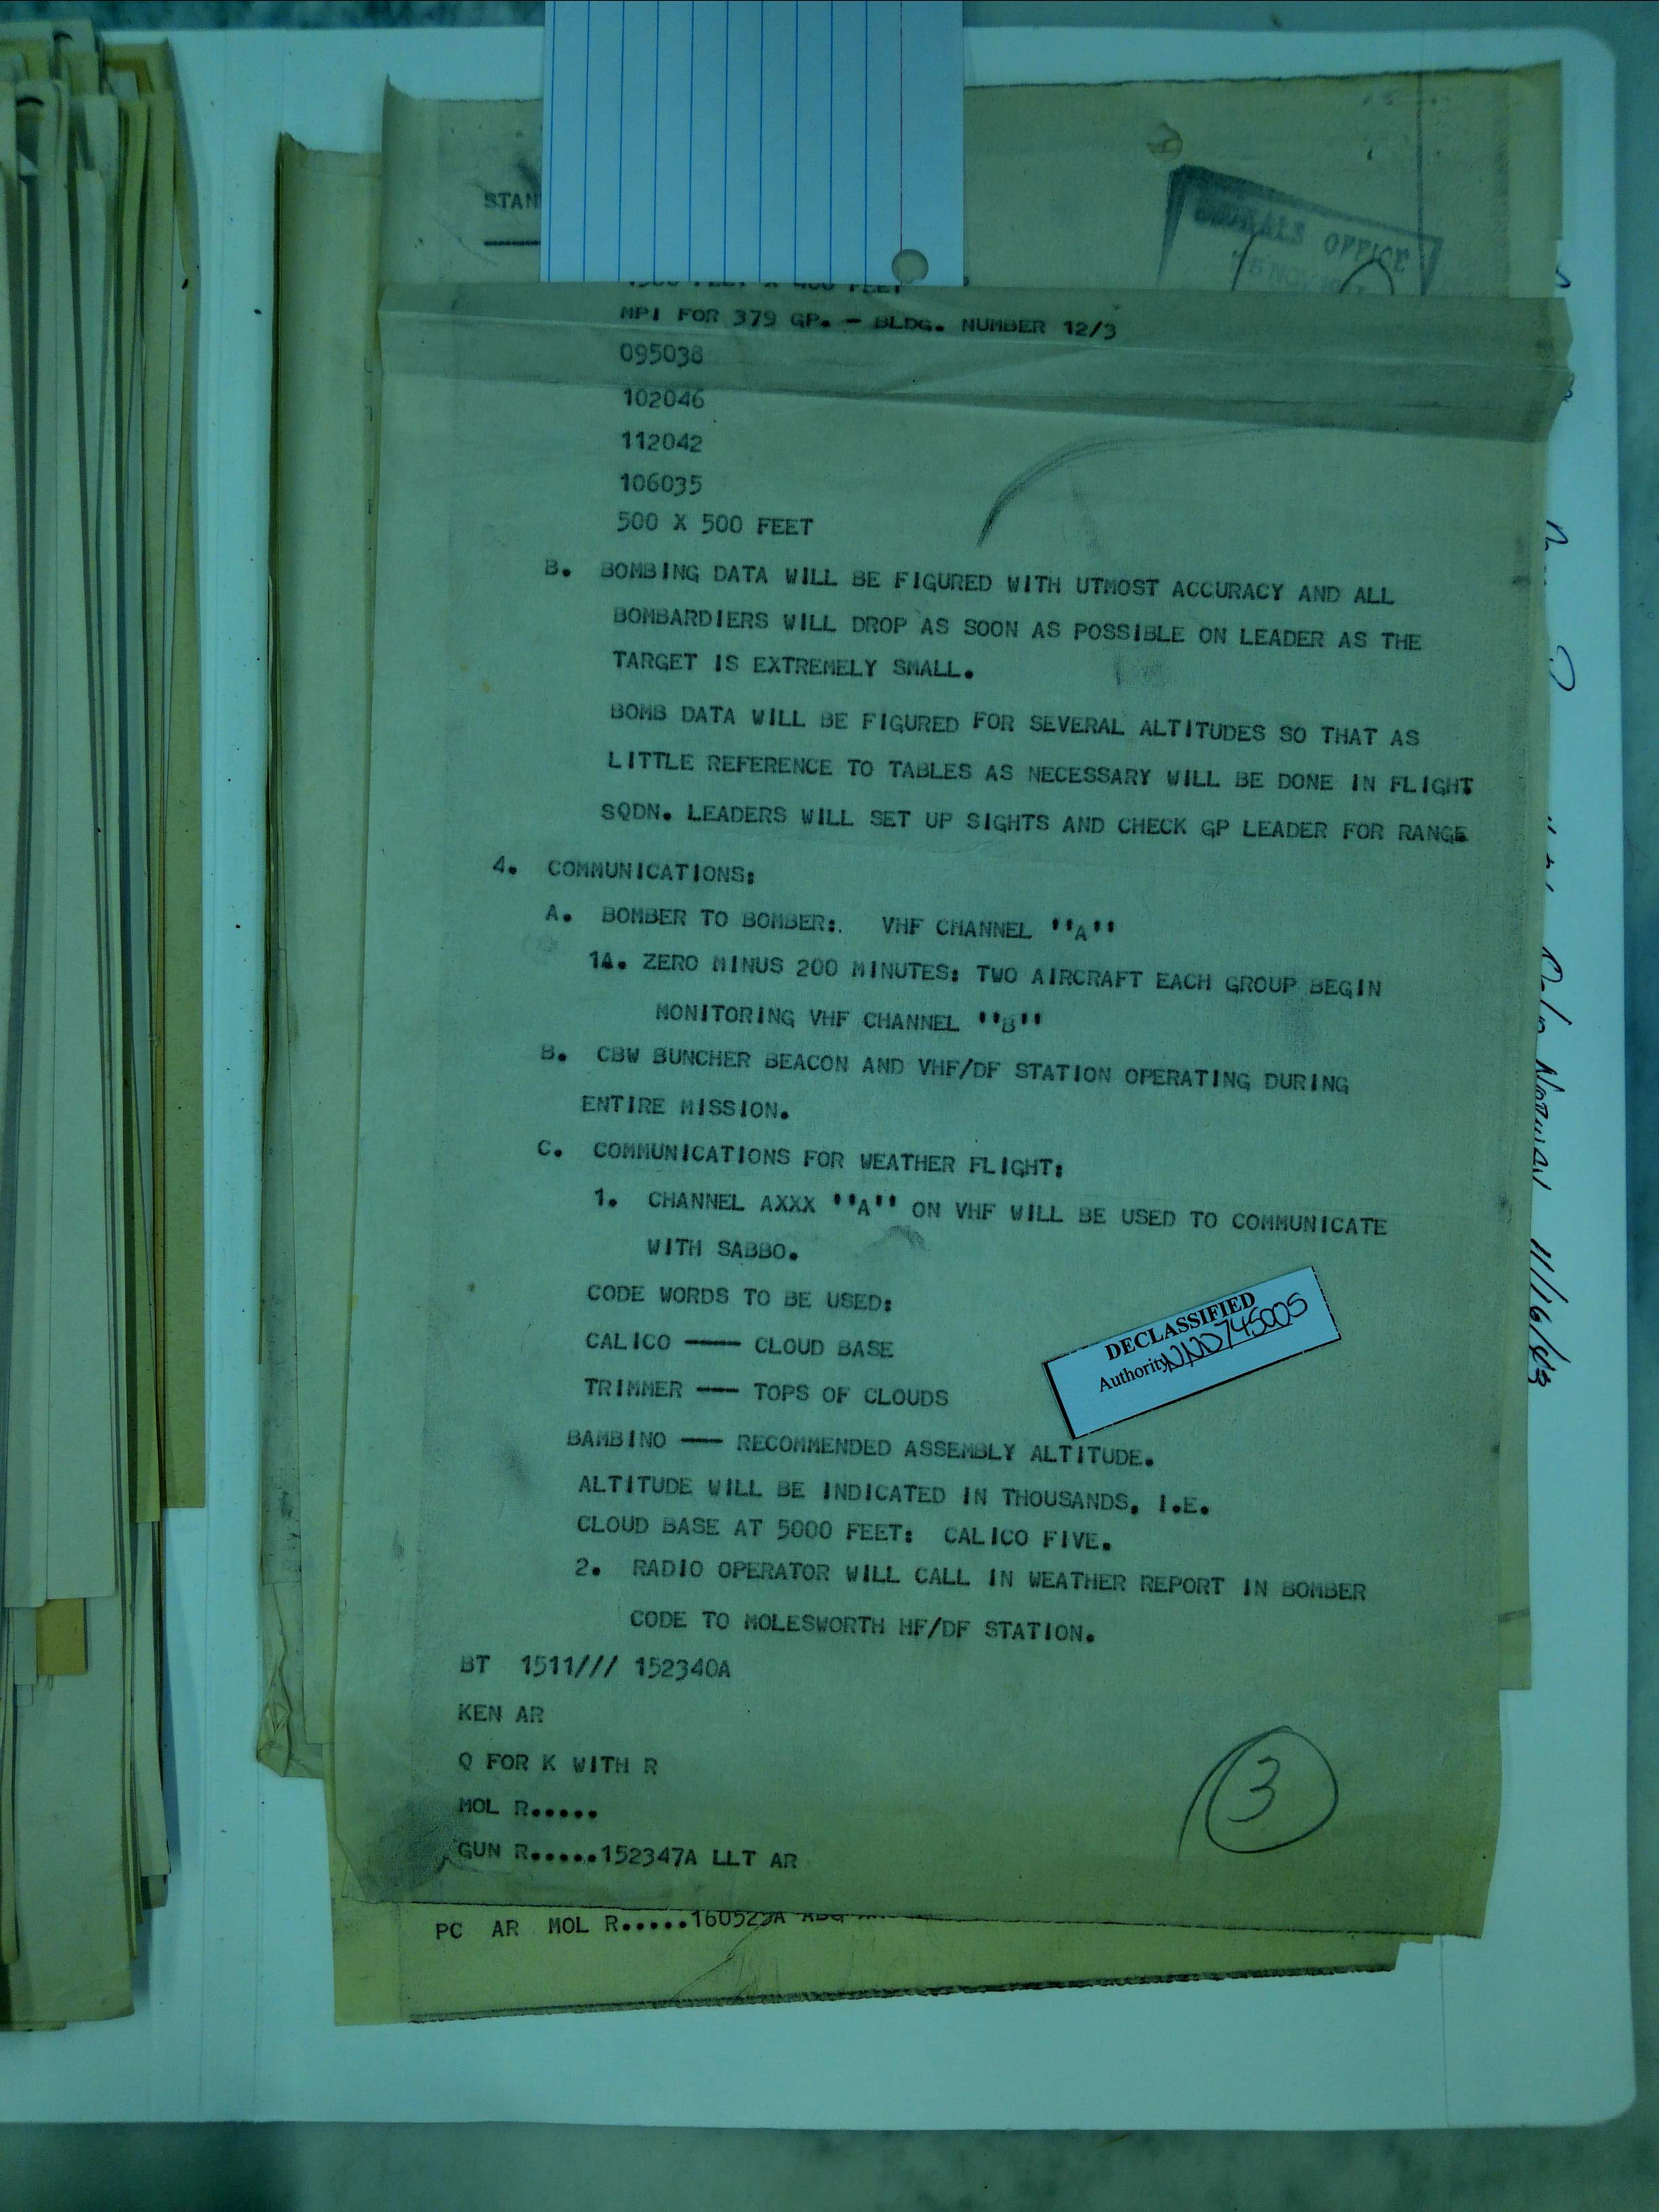 STAN
SIGNALS OFFICE
MPI FOR 379 GP. — BLDG. NUMBER 12/3
095038
102046
112042
106035
500 X 500 FEET
B. BOMBING DATA WILL BE FIGURED WITH UTMOST ACCURACY AND ALL
BOMBARDIERS WILL DROP AS SOON AS POSSIBLE ON LEADER AS THE
TARGET IS EXTREMELY SMALL.
BOMB DATA WILL BE FIGURED FOR SEVERAL ALTITUDES SO THAT AS
LITTLE REFERENCE TO TABLES AS NECESSARY WILL BE DONE IN FLIGHT
SQDN. LEADERS WILL SET UP SIGHTS AND CHECK GP LEADER FOR RANGE
4. COMMUNICATIONS:
A. BOMBER TO BOMBER:. VHF CHANNEL ''A''
1A. ZERO MINUS 200 MINUTES: TWO AIRCRAFT EACH GROUP BEGIN
MONITORING VHF CHANNEL ''B''
B. CBW BUNCHER BEACON AND VHF/DF STATION OPERATING DURING
ENTIRE MISSION.
C. COMMUNICATIONS FOR WEATHER FLIGHT:
1. CHANNEL AXXX ''A'' ON VHF WILL BE USED TO COMMUNICATE
WITH SABBO.
CODE WORDS TO BE USED:
CALICO —— CLOUD BASE
TRIMMER —— TOPS OF CLOUDS
BAMBINO —— RECOMMENDED ASSEMBLY ALTITUDE.
ALTITUDE WILL BE INDICATED IN THOUSANDS, I.E.
CLOUD BASE AT 5000 FEET: CALICO FIVE.
2. RADIO OPERATOR WILL CALL IN WEATHER REPORT IN BOMBER
CODE TO MOLESWORTH HF/DF STATION.
BT 1511/// 152340A
KEN AR
Q FOR K WITH R
MOL R.....
GUN R.....152347A LLT AR
3
PC AR MOL R.....160525A
DECLASSIFIED
Authority NND745005
11/16/43